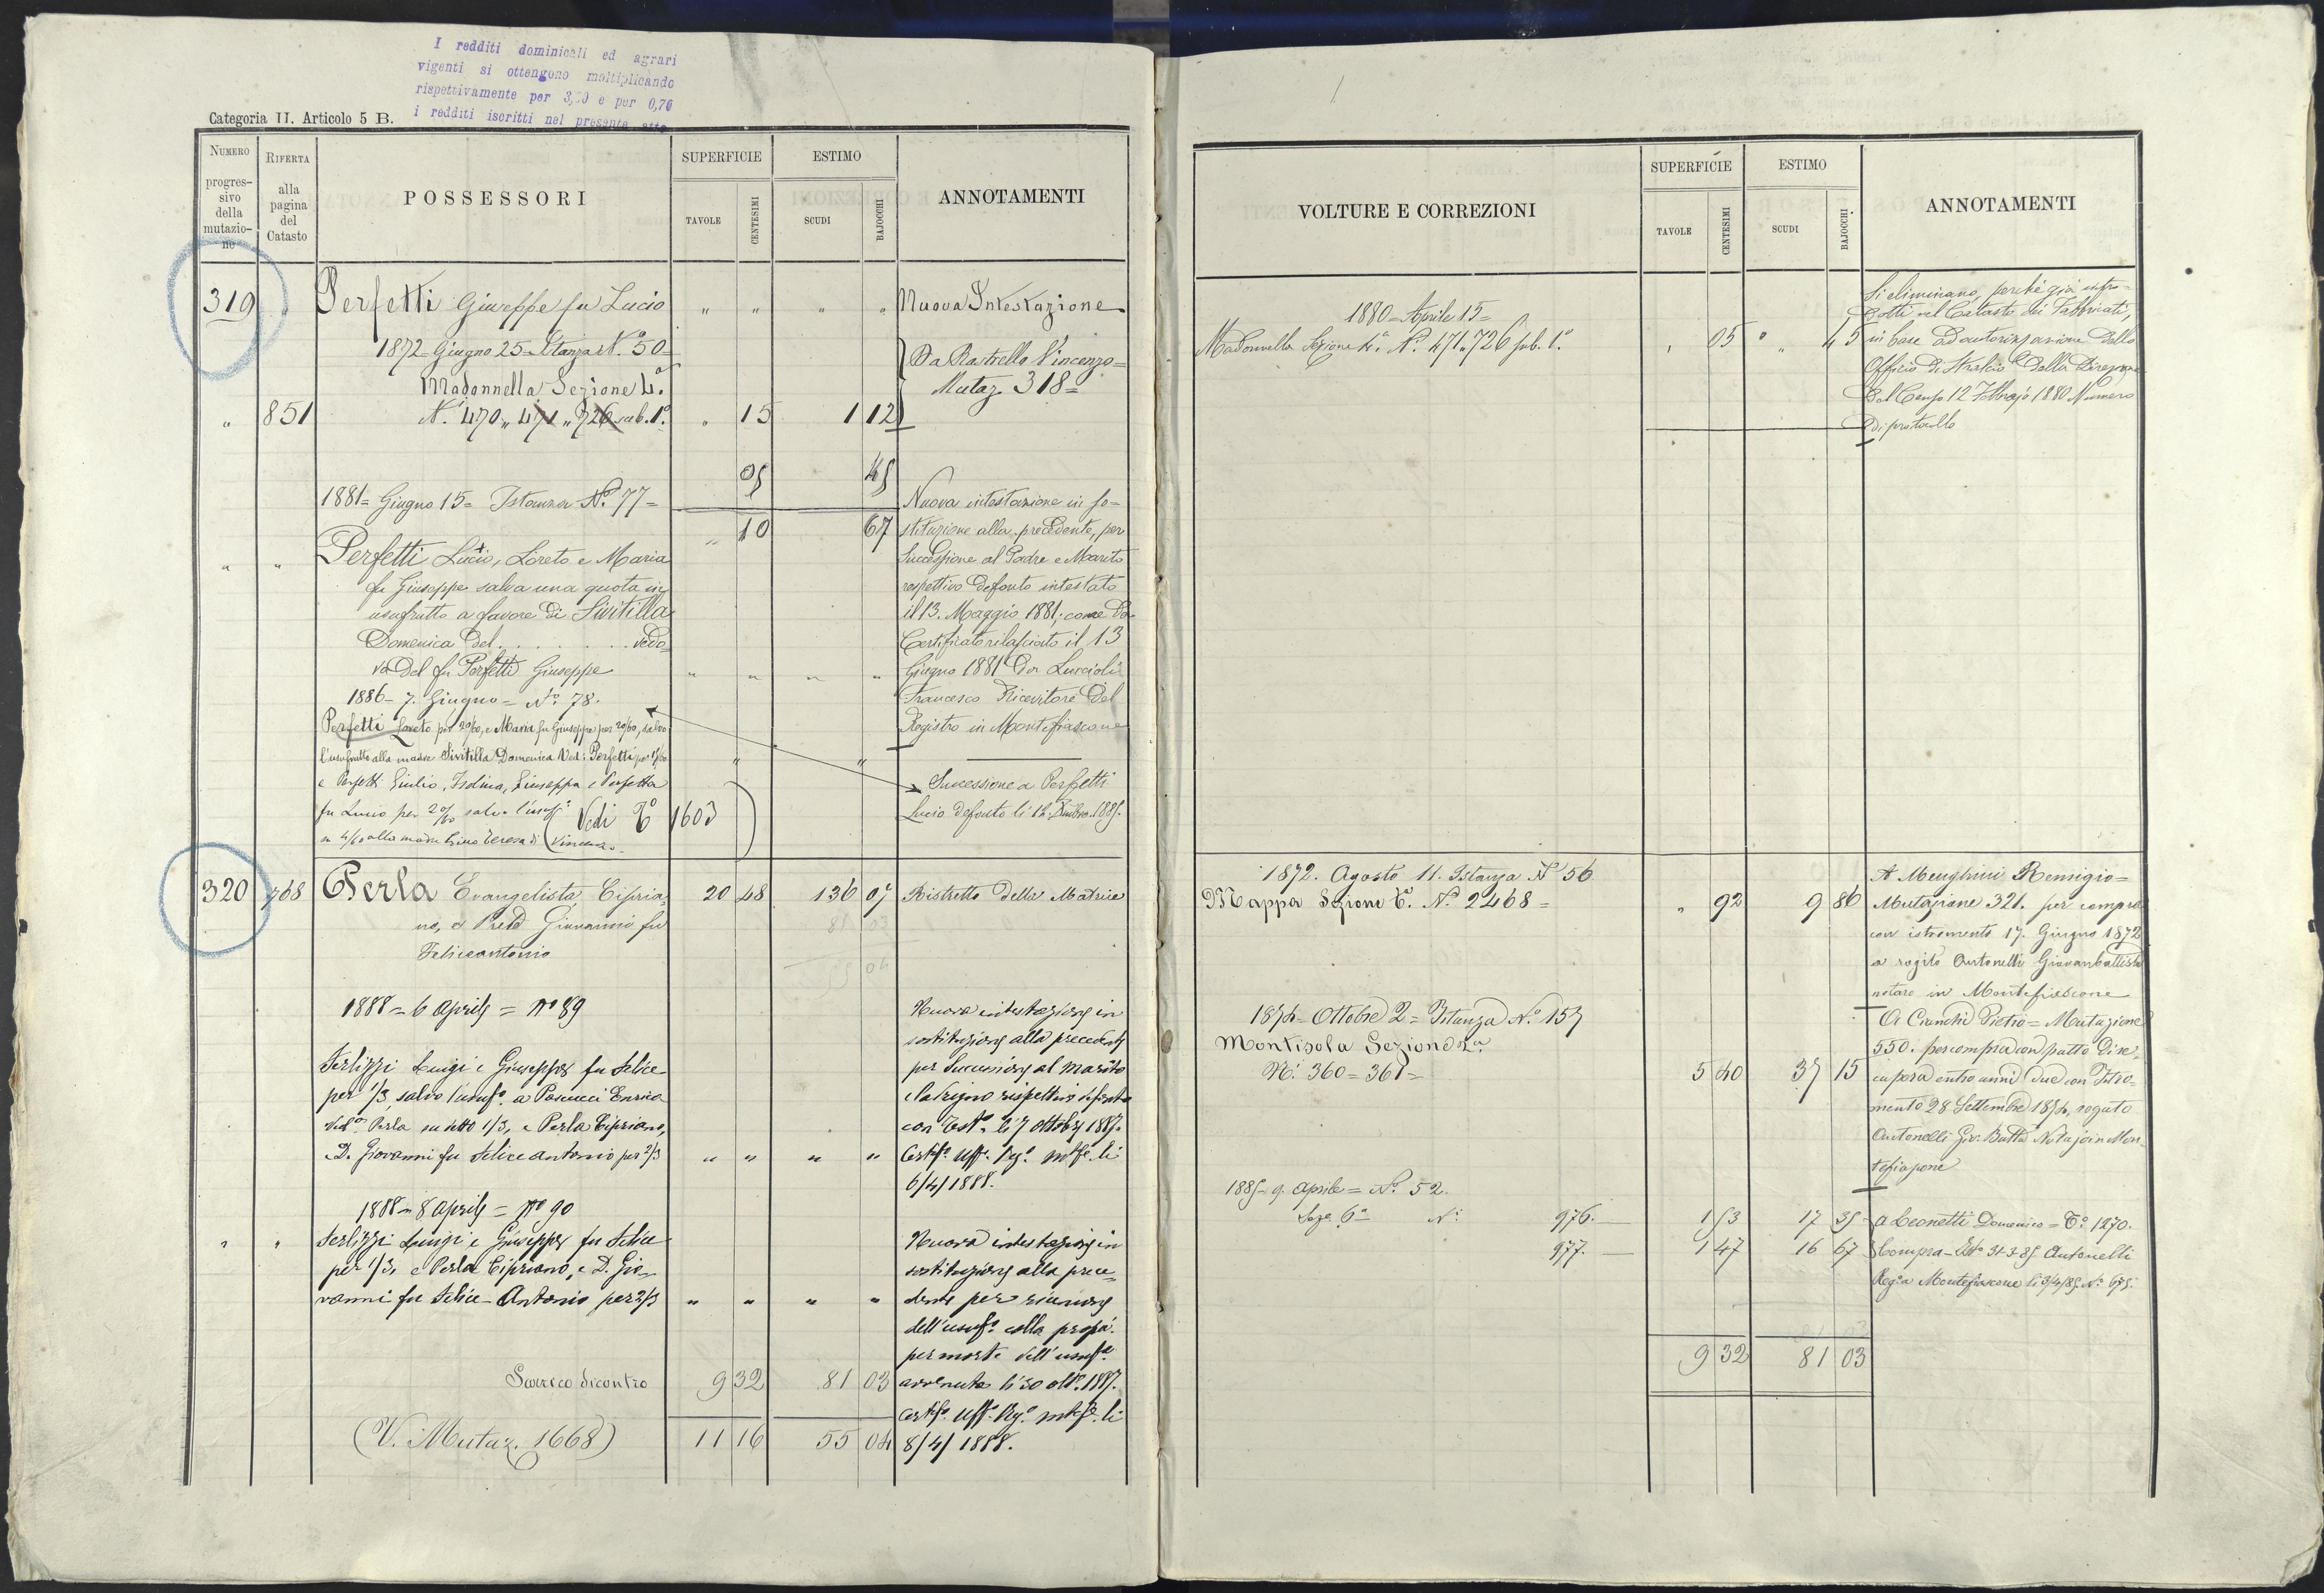 I redditi dominicali ed agrari
vigenti si ottengono moltiplicando
rispettivamente per e per 0,70
i redditi iscritti nel presente atto
Categoria II. Articolo 5 B.
NUMERO
progres-
sivo
della
mutazio-
ne
RIFERTA
alla
pagina
del
Catasto
POSSESSORI
SUPERFICIE
TAVOLE
CENTESIMI
ESTIMO
SCUDI
BAJOCCHI
ANNOTAMENTI
319 Perfetti Giuseppe fu Lucio " " " " Nuova Intestazione
1872 Giugno 25 Istanza N.° 50 Da Rastrello Vincenzo =
Madonnella Sezione 4.a Mutaz. 318 =
" 851 N. 470 " 471 " 726 sub. 1.° " 15 1 12
05 45
1881 = Giugno 15 = Istanza N.° 77 = Nuova intestazione in so=
" 10 67 stituzione alla precedente, per
" " Perfetti Lucio, Loreto e Maria Successione al Padre e Marito
fu Giuseppe salva una quota in respettivo defonto intestato
usufrutto a favore di Sivitilla il 13. Maggio 1881, come da
Domenica del . . . . . . . vedo= Certificato rilasciato il 13
va del fu Perfetti Giuseppe " " " " Giugno 1881 da Luccioli
1886 - 7. Giugno = N.° 78. Francesco Ricevitore del
Perfetti Loreto per 20/60, e Maria fu Giuseppe per 20/60, salvo Registro in Montefiascone
l'usufrutto alla madre Sivitilla Domenica Ved: Perfetti per
e Perfetti Giulio, Isolina, Giuseppa e Perfetta Successione a Perfetti
fu Lucio per 20/60 salvo l'usuf.° Vedi T.° 1603 Lucio defonto li 12. 1885.
in 4/60 alla madre Teresa di Vincenzo
320 768 Perla Evangelista, Cipria= 20 48 136 07 Ristretto della Matrice
no, e Giovanni fu
Feliceantonio
1888 = 6 Aprile = N.° 89 Nuova intestazione in
sostituzione alla precedente
Terlizzi Luigi e Giuseppe fu Felice per Successione al marito
per 1/3, salvo l'usuf.° a Pascucci Enrica e rispettivo defonto
Ved.a Perla su detto 1/3, e Perla Cipriano, con Test.° li 7 ottobre 1887.
e D. Giovanni fu Felice antonio per 2/3 " " " " Certif.° Uff.° Reg.° li
6/4/1888.
1888 = 8 Aprile = N.° 90
" " Terlizzi Luigi e Giuseppe fu Felice Nuova intestazione in
per 1/3, e Perla Cipriano, e D. Gio= sostituzione alla prece=
vanni fu Felice-Antonio per 2/3 " " " " dente per riunione
dell'usuf.° colla prop.a
per morte dell'usuf.a
Scarico dicontro 9 32 81 03 avvenuta li 30 1887.
Certif.° Uff.° Reg.° li
(V. Mutaz. 1668) 11 16 55 04 8/4/1888.
VOLTURE E CORREZIONI
SUPERFICIE
TAVOLE
CENTESIMI
ESTIMO
SCUDI
BAJOCCHI
ANNOTAMENTI
Si eliminano, perchè già intro=
1880 = Aprile 15 = dotti nel Catasto dei Fabbricati,
Madonnella Sezione 4.a N.° 471. 726 sub. 1.° " 05 " 45 in base ad autorizzazione dello
Officio di Stralcio della Direzione
del Censo 12 Febbrajo 1880 Numero
di protocollo
1872. Agosto 11. Istanza N.° 56 A Menghini Remigio =
Mappa Sezione N.° 2468 = " 92 9 86 Mutazione 321. per compra
con istromento 17. Giugno 1872
a rogito Antonelli Giovanbattista
notaro in Montefiascone
1874 = Ottobre 2 = Istanza N.° 157 A Cianchi Pietro = Mutazione
Montisola Sezione 2a 550. per compra con patto di re=
N.i 360 = 361 = 5 40 37 15 cupera entro anni due con Istro=
mento 28 Settembre 1874, rogato
Antonelli Gio: Batta Notajo in Mon=
tefiascone
1885 = 9. Aprile = N.° 52.
Sez.e 6a N.i 976. 1 53 17 35 a Leonetti Domenico = T.° 1270.
977. 1 47 16 67 Compra = Ist.° 31-3-85 Antonelli
Reg.a Montefiascone li 3/4/85 N.° 675.
9 32 81 03